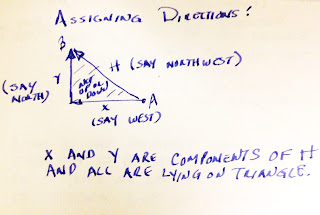 ASSIGNING DIRECTIONS!
B
H (SAY NORTHWEST)
Y
(SAY NORTH)
ANY UP OR DOWN
A
X
(SAY WEST)
X AND Y ARE COMPONENTS OF H
AND ALL ARE LYING ON TRIANGLE.